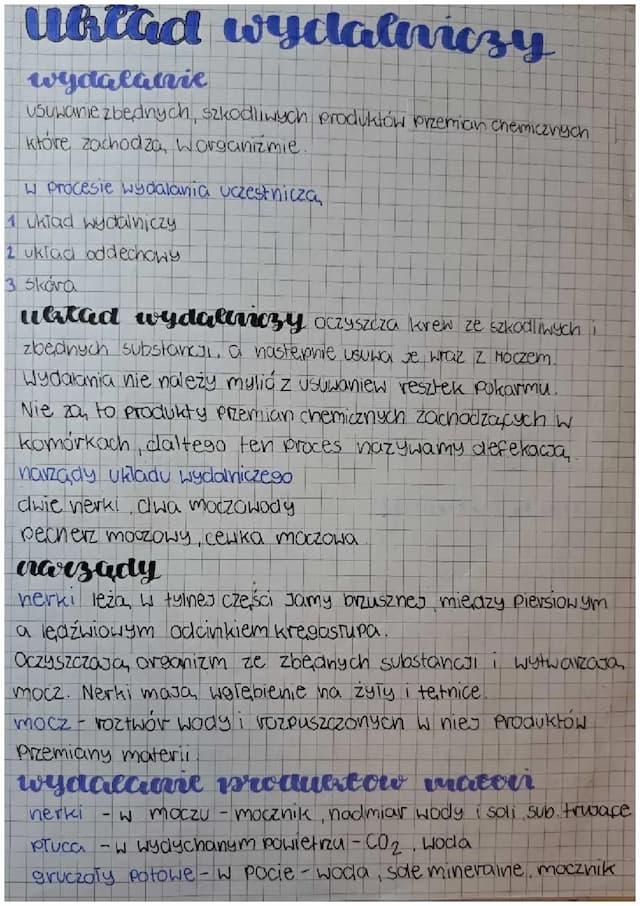 układ wydalniczy
wydalanie
usuwanie zbędnych, szkodliwych produktów przemian chemicznych
które zachodzą w organizmie.
w procesie wydalania uczestniczą
1 układ wydalniczy
2 układ oddechowy
3 skóra
układ wydalniczy oczyszcza krew ze szkodliwych i
zbędnych substancji, a następnie usuwa je wraz z moczem.
Wydalania nie należy mylić z usuwaniew resztek pokarmu.
Nie są to produkty przemian chemicznych zachodzących w
komórkach, dlatego ten proces nazywamy defekacją
narządy układu wydalniczego
dwie nerki, dwa moczowody
pęcherz moczowy, cewka moczowa
narządy
nerki leżą w tylnej części jamy brzusznej między piersiowym
a lędźwiowym odcinkiem kręgosłupa.
Oczyszczają organizm ze zbędnych substancji i wytwarzają
mocz. Nerki mają wgłębienie na żyły i tętnice.
mocz - roztwór wody i rozpuszczonych w niej produktów
przemiany materii.
wydalanie produktów materii
nerki - w moczu - mocznik, nadmiar wody i soli, sub. trujące
płuca - w wydychanym powietrzu - CO2, woda
gruczoły potowe - w pocie - woda, sole mineralne, mocznik